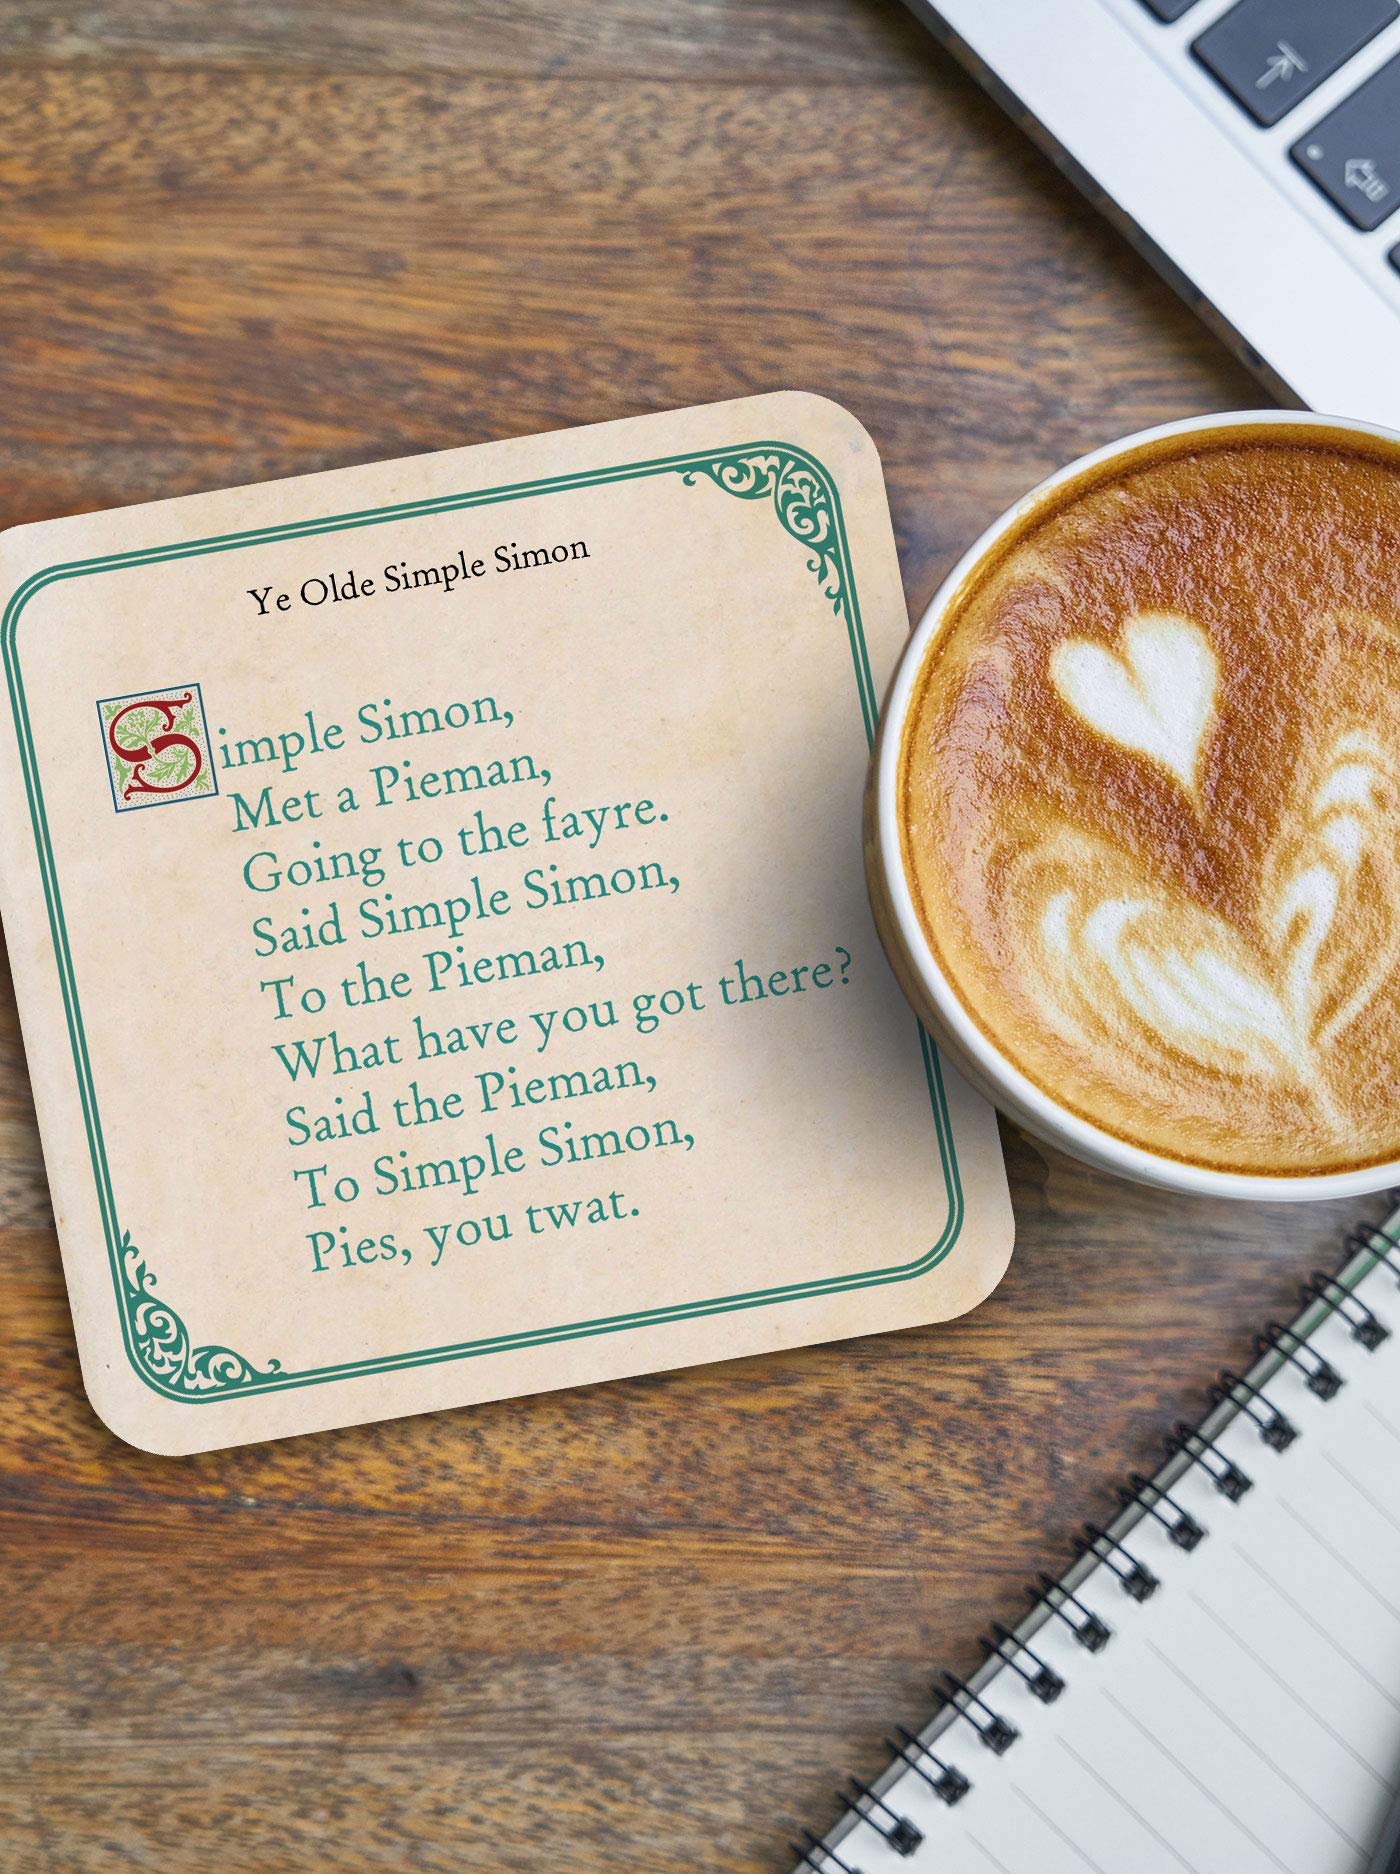 Ye Olde Simple Simon
Simple Simon,
Met a Pieman,
Going to the fayre.
Said Simple Simon,
To the Pieman,
What have you got there?
Said the Pieman,
To Simple Simon,
Pies, you twat.